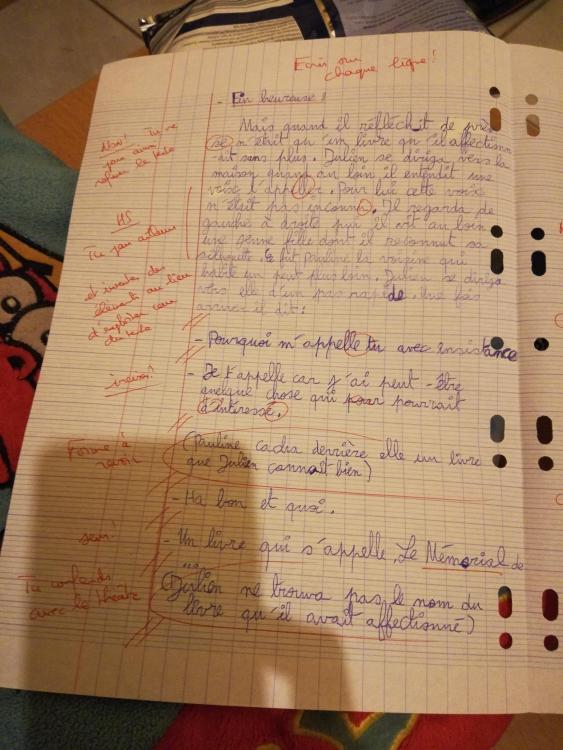 Ecris sur
chaque ligne !
- Fin heureuse !
Mais quand il réfléchit de près
se n'était qu'un livre qu'il affection
-ait sans plus. Julien se dirigea vers la
maison quand au loin il entendit une
voix l'appeller. Pour lui cette voix
n'était pas inconnu. Il regarda de
gauche à droite puis il vit au loin
une jenne fille dont il reconnut sa
silhouette. Ce fut Pauline la voisine qui
habite un peut plus loin. Julien se dirigea
vers elle d'un pas rapide. Une fois
arriver il dit :
- Pourquoi m'appelle tu avec insistance
- Je t'appelle car j'ai peut-être
quelque chose qui pour pourrait
d'intéressé.
(Pauline cacha derrière elle un livre
que Julien connaît bien)
- Ha bon et quoi.
- Un livre qui s'appelle, Le Mémorial de
...
(Julien ne trouva pas le nom du
livre qu'il avait affectionné)
Non ! Tu ne
peux
refuser le texte
HS
Tu pars ailleurs
et inventes des
éléments au lieu
d'exploiter ceux
du texte
Forme à
revoir
sens !
Tu confonds
avec le théâtre